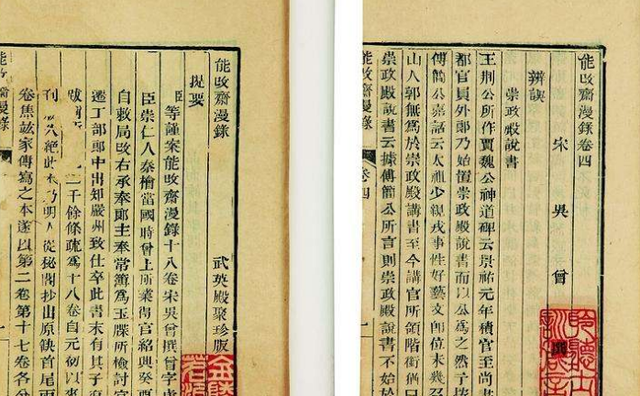 能改齋漫錄卷四
宋 吳 曾
辨誤
崇政殿說書
王荆公所作賈魏公神道碑云景祐元年積官至尚書
都官員外郎乃始置崇政殿說書而以公爲之然予按
傅簡公嘉話云太祖少親戎事性好藝文即位未幾召
山人郭無爲於崇政殿講書至今講官所領階銜猶曰
崇政殿說書云據傅簡公所言則崇政殿說書不始
能改齋漫錄 卷四
能改齋漫錄
武英殿聚珍版
提要
臣等謹案能改齋漫錄十八卷宋吳曾撰曾字
臣崇仁人秦檜當國時曾上所業得官紹興癸
自敕局改右承奉郎主奉常簿爲玉牒所檢討官
遷工部郎中出知嚴州致仕卒此書末有其子
二千餘條疏爲十八卷自元初以來
刊 絕此本乃明人從秘閣抄出原缺首尾
卷焦竑家傳寫之本遂以第二卷第十七卷各分
能改齋漫錄